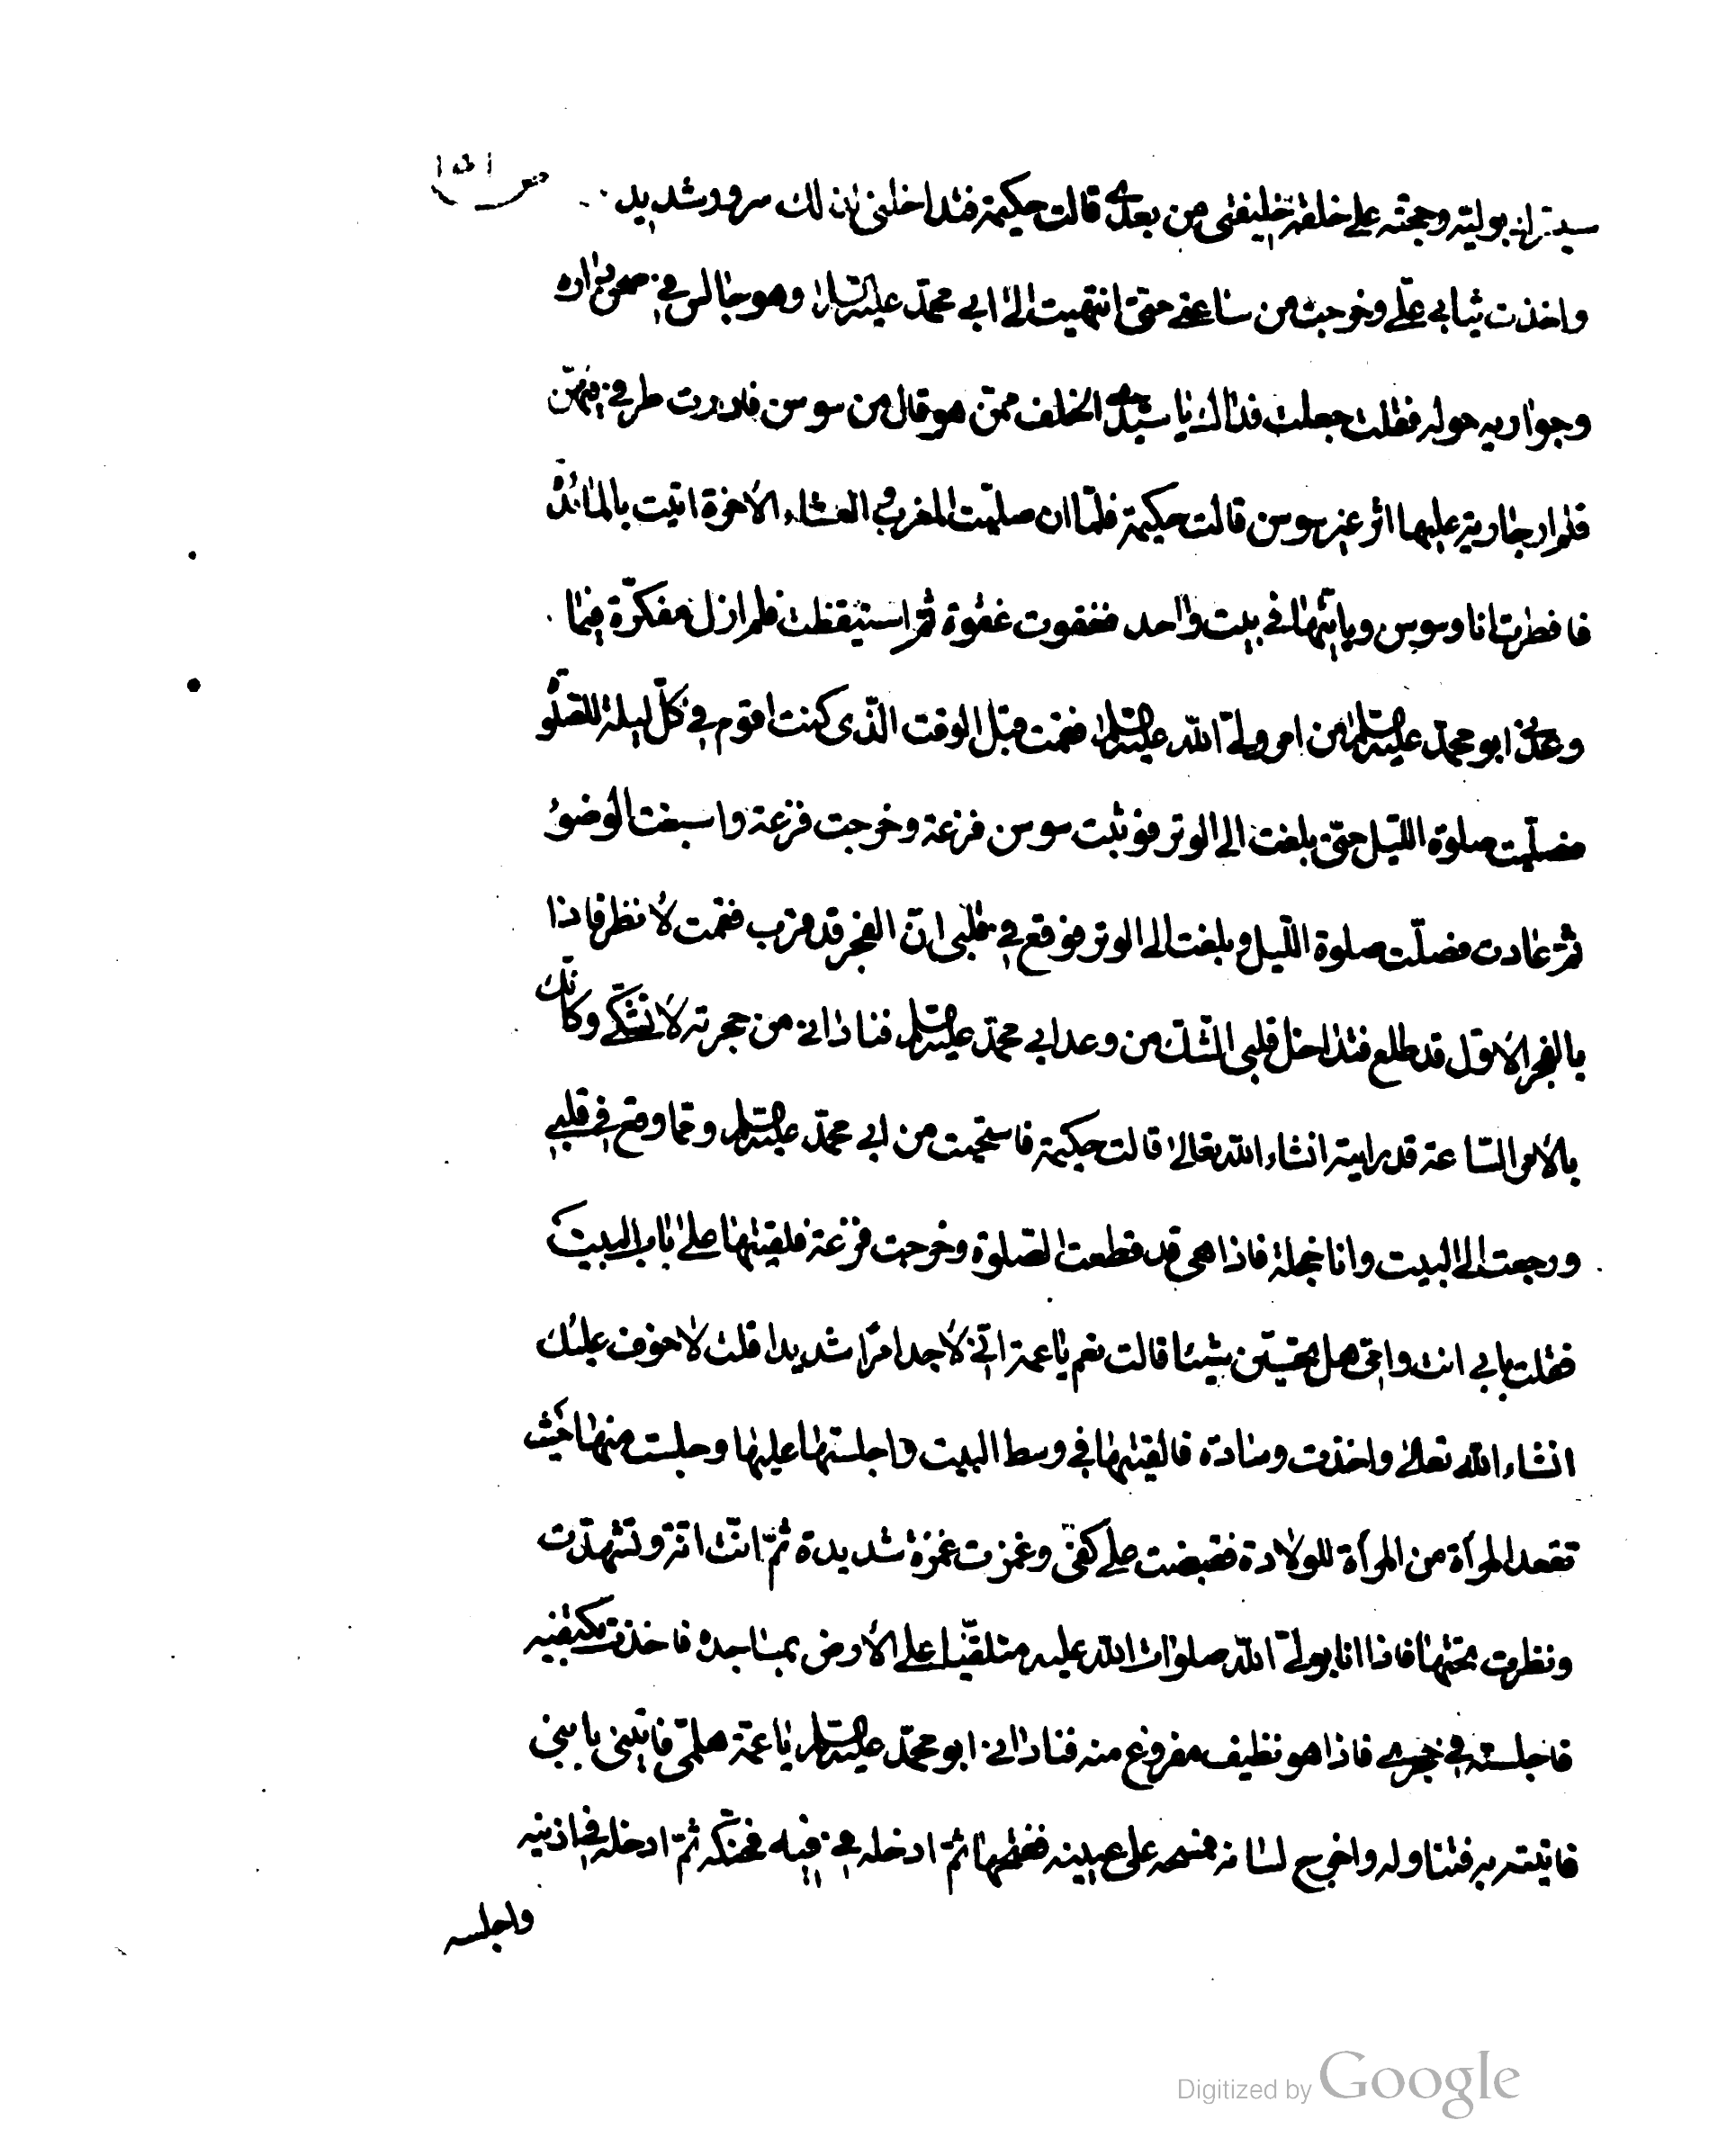 سيسرك بوليه وحجته على خلقه خليفتى من بعدى قالت حكيمة فتداخلنى لذلك سرور شديد
واخذت ثيابى علىّ وخرجت من ساعتى حتى انتهيت الى ابى محمّد عليه السلام وهو جالس فى صحن داره
وجواريه حوله فقلت جعلت فداك يا سيّدى الخلف ممّن هو قال من سوسن فادرت طرفى فيهنّ
فلم ار جارية عليها اثر غير سوسن قالت حكيمة فلمّا ان صلّيت المغرب و العشاء الاخرة اتيت بالمائدة
فافطرت انا وسوسن وبايتّها فى بيت واحد فغفوت غفوة ثم استيقظت فلم ازل مفكرّة فيما
وعدنى ابو محمّد عليه السلم من امر ولىّ الله عليه السلم فقمت قبل الوقت الّذى كنت اقوم فى كلّ ليلة للصّلوة
فصلّيت صلوة اللّيل حتّى بلغت الى الوتر فوثبت سوسن فزعة وخرجت فزعة واسبغت الوضوء
ثم عادت فصلّت صلوة اللّيل وبلغت الى الوتر فوقع فى قلبى انّ الفجر قد قرب فقمت لانظر فاذا
بالفجر الاوّل قد طلع فتداخل قلبى الشّك من وعد ابى محمّد عليه السلم فنادانى من حجرته لا تشكّى وكانّك
بالامر السّاعة قد رايته انشاء الله تعالى قالت حكيمة فاستحييت من ابى محمّد عليه السلم وممّا وقع فى قلبى
ورجعت الى البيت وانا خجلة فاذا هى قد قطعت الصّلوة وخرجت فزعة فلقيتها على باب البيت
فقلت بابى انت وامّى هل تحسّين شيئا قالت نعم يا عمة انّى لاجد امرا شديدا قلت لا خوف عليك
انشاء الله تعالى واخذت وسادة فالقيتها فى وسط البيت واجلستها عليها وجلست منها حيث
تقعد المرأة من المرأة للولادة فقبضت على كفّى وغمزت غمزة شديدة ثمّ انّت انّة وتشهّدت
ونظرت تحتها فاذا انا بولىّ الله صلوات الله عليه متلقّيا على الارض بمساجده فاخذت بكتفيه
فاجلسته فى حجرى فاذا هو نظيف مفروغ منه فنادانى ابو محمّد عليه السلم يا عمّة هلمّى فايتينى بابنى
فاتيته به فتناوله واخرج لسانه فمسحه على عينيه ففتحها ثمّ ادخله فى فيه فحنّكه ثمّ ادخله فى اذنيه
واجلسه
Digitized by Google